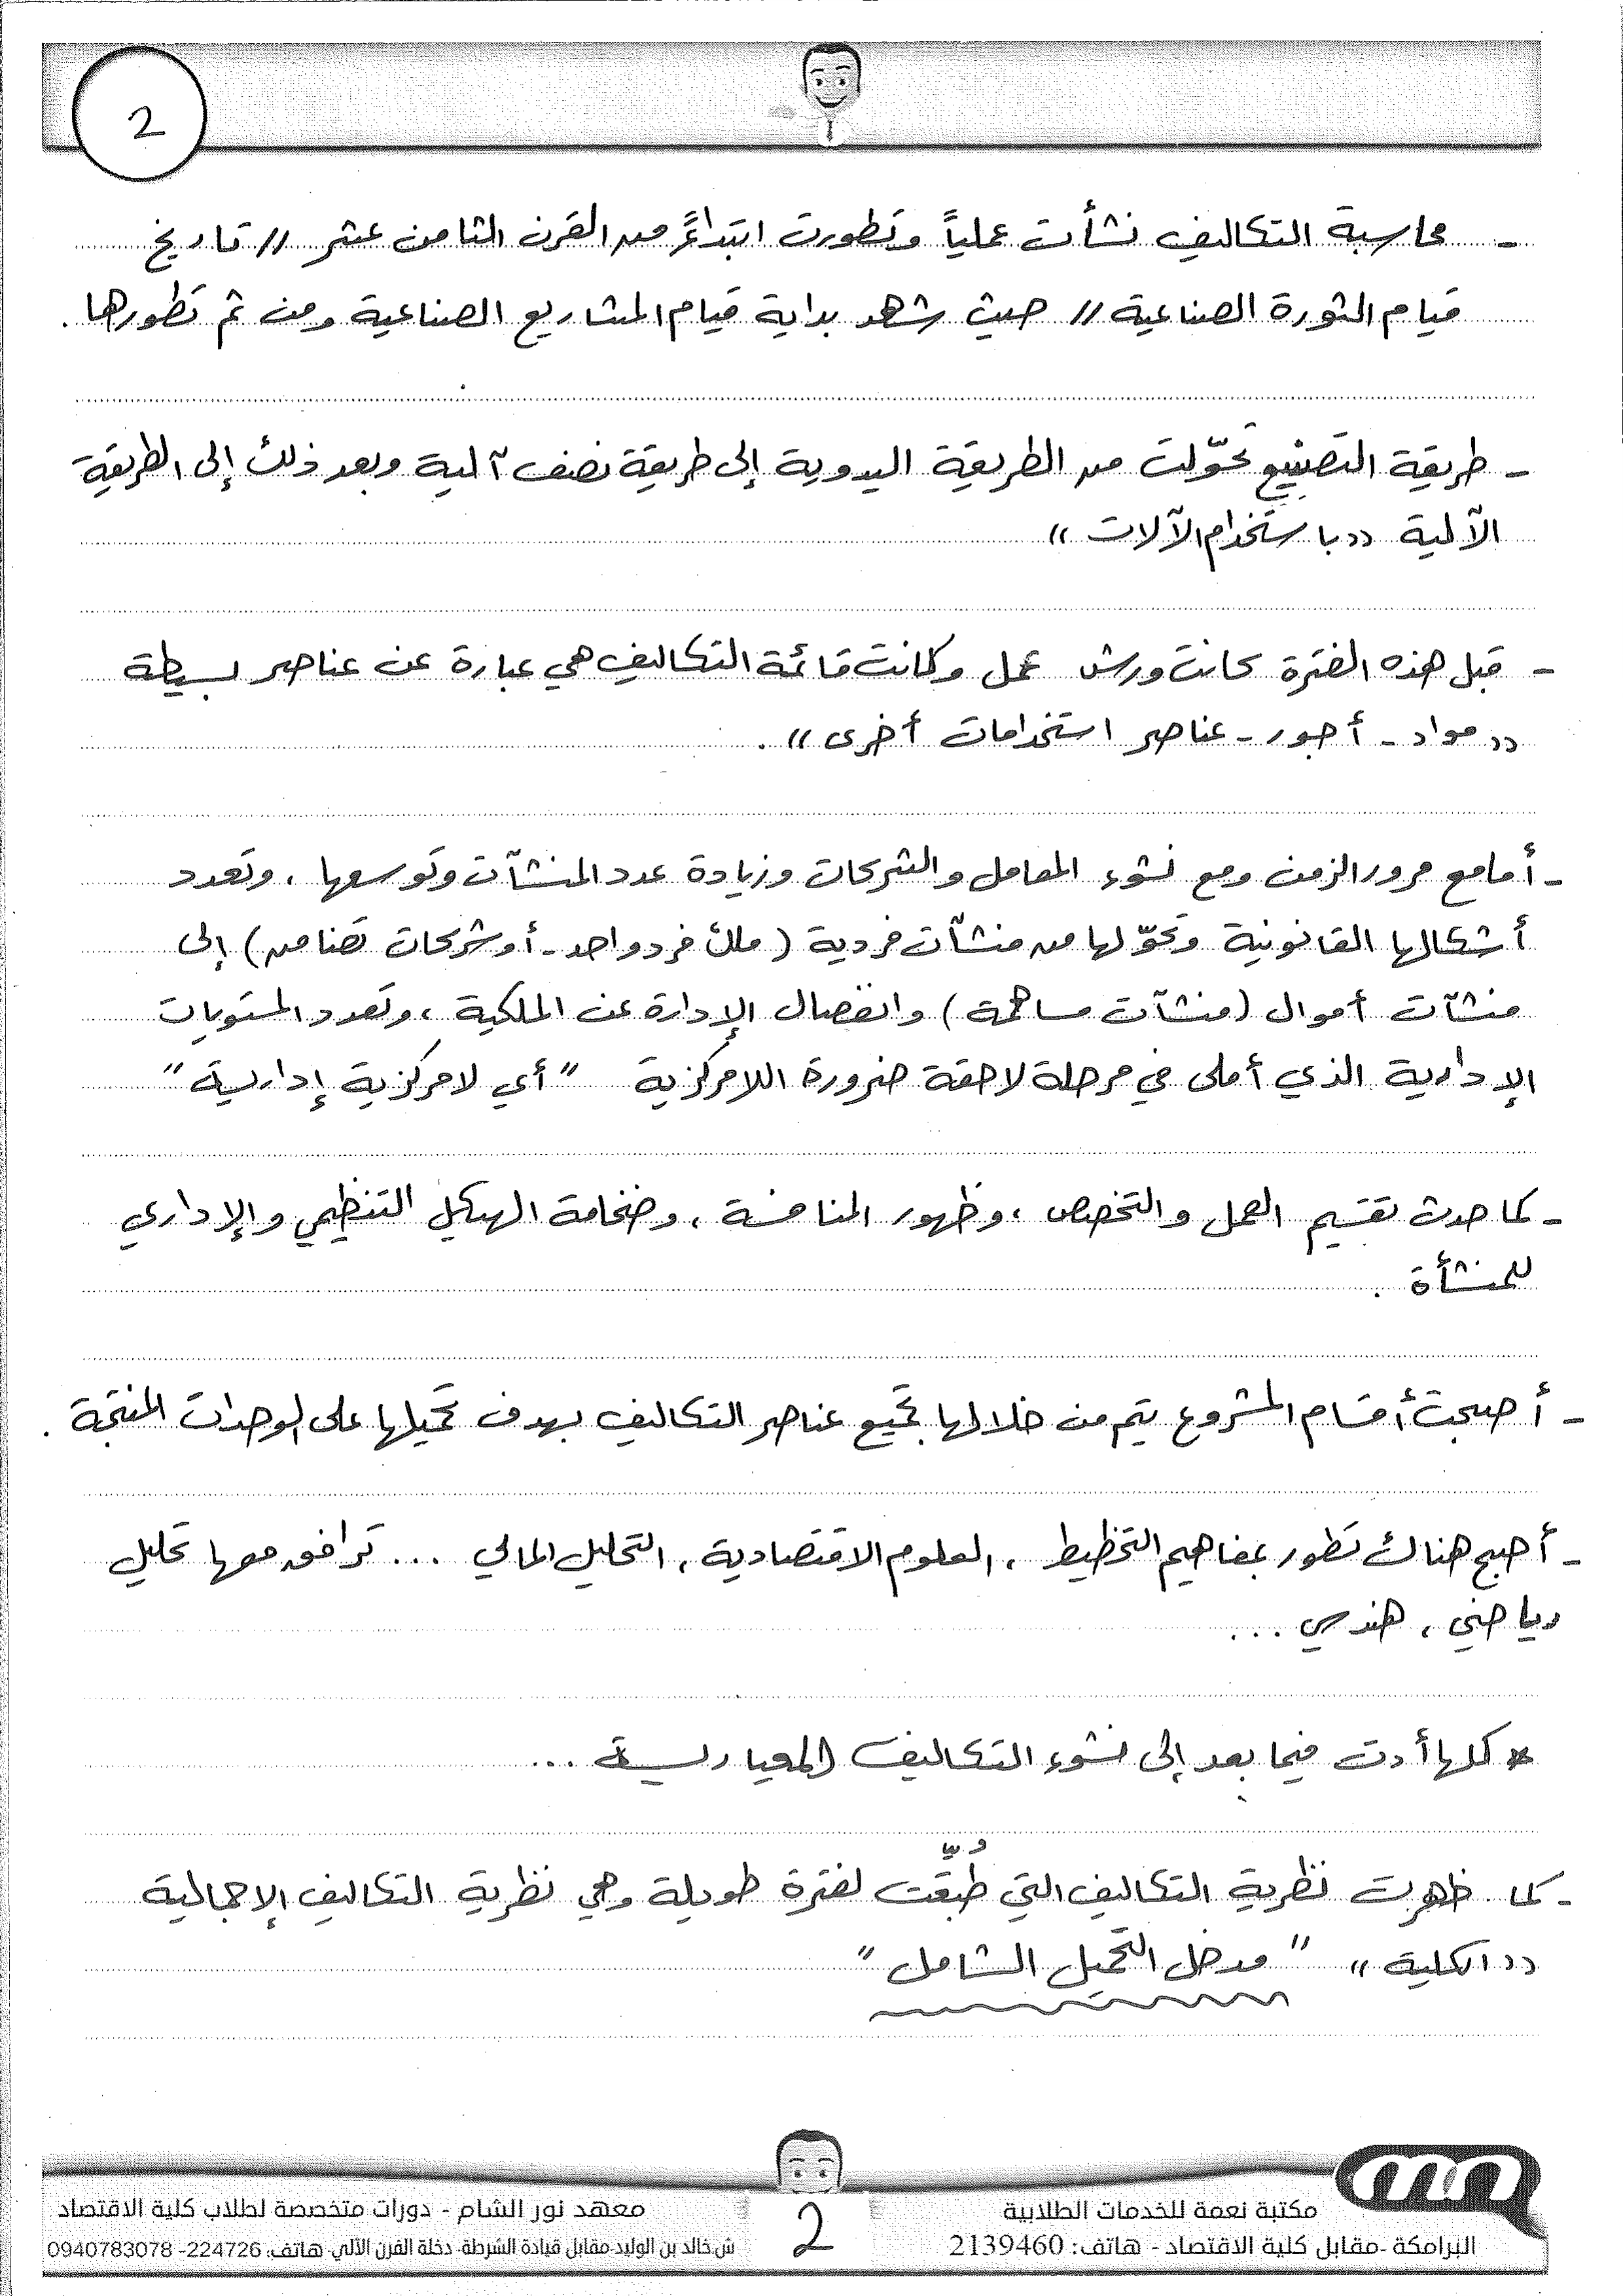 2
- محاسبة التكاليف نشأت عملياً وتطورت ابتداءً من القرن الثامن عشر // تاريخ
قيام الثورة الصناعية // حيث شهد بداية قيام المشاريع الصناعية ومن ثم تطورها .
- طريقة التصنيع تحوّلت من الطريقة اليدوية إلى طريقة نصف آلية وبعد ذلك إلى الطريقة
الآلية (( باستخدام الآلات ))
- قبل هذه الفترة كانت ورش عمل وكانت قائمة التكاليف هي عبارة عن عناصر بسيطة
(( مواد - أجور - عناصر استخدامات أخرى )) .
- أما مع مرور الزمن ومع نشوء المعامل والشركات وزيادة عدد المنشآت وتوسعها ، وتعدد
أشكالها القانونية وتحوّلها من منشآت فردية ( ملك فرد واحد - أو شركات تضامن ) إلى
منشآت أموال ( منشآت مساهمة ) وانفصال الإدارة عن الملكية ، وتعدد المستويات
الإدارية الذي أملى في مرحلة لاحقة ضرورة اللامركزية " أي لامركزية إدارية "
- كما حدث تقسيم العمل والتخصص ، وظهور المنافسة ، وضخامة الهيكل التنظيمي والإداري
للمنشأة .
- أصبحت أقسام المشروع يتم من خلالها تجميع عناصر التكاليف بهدف تحميلها على الوحدات المنتجة .
- أصبح هناك تطور بمفاهيم التخطيط ، العلوم الاقتصادية ، التحليل المالي ... ترافق معها تحليل
رياضي ، هندسي ...
* كلها أدت فيما بعد إلى نشوء التكاليف المعيارية ...
- كما ظهرت نظرية التكاليف التي طُبِّقت لفترة طويلة وهي نظرية التكاليف الإجمالية
(( الكلية )) " مدخل التحميل الشامل "
مكتبة نعمة للخدمات الطلابية
البرامكة -مقابل كلية الاقتصاد - هاتف: 2139460
2
معهد نور الشام - دورات متخصصة لطلاب كلية الاقتصاد
ش.خالد بن الوليد-مقابل قيادة الشرطة- دخلة الفرن الآلي- هاتف: 224726- 0940783078